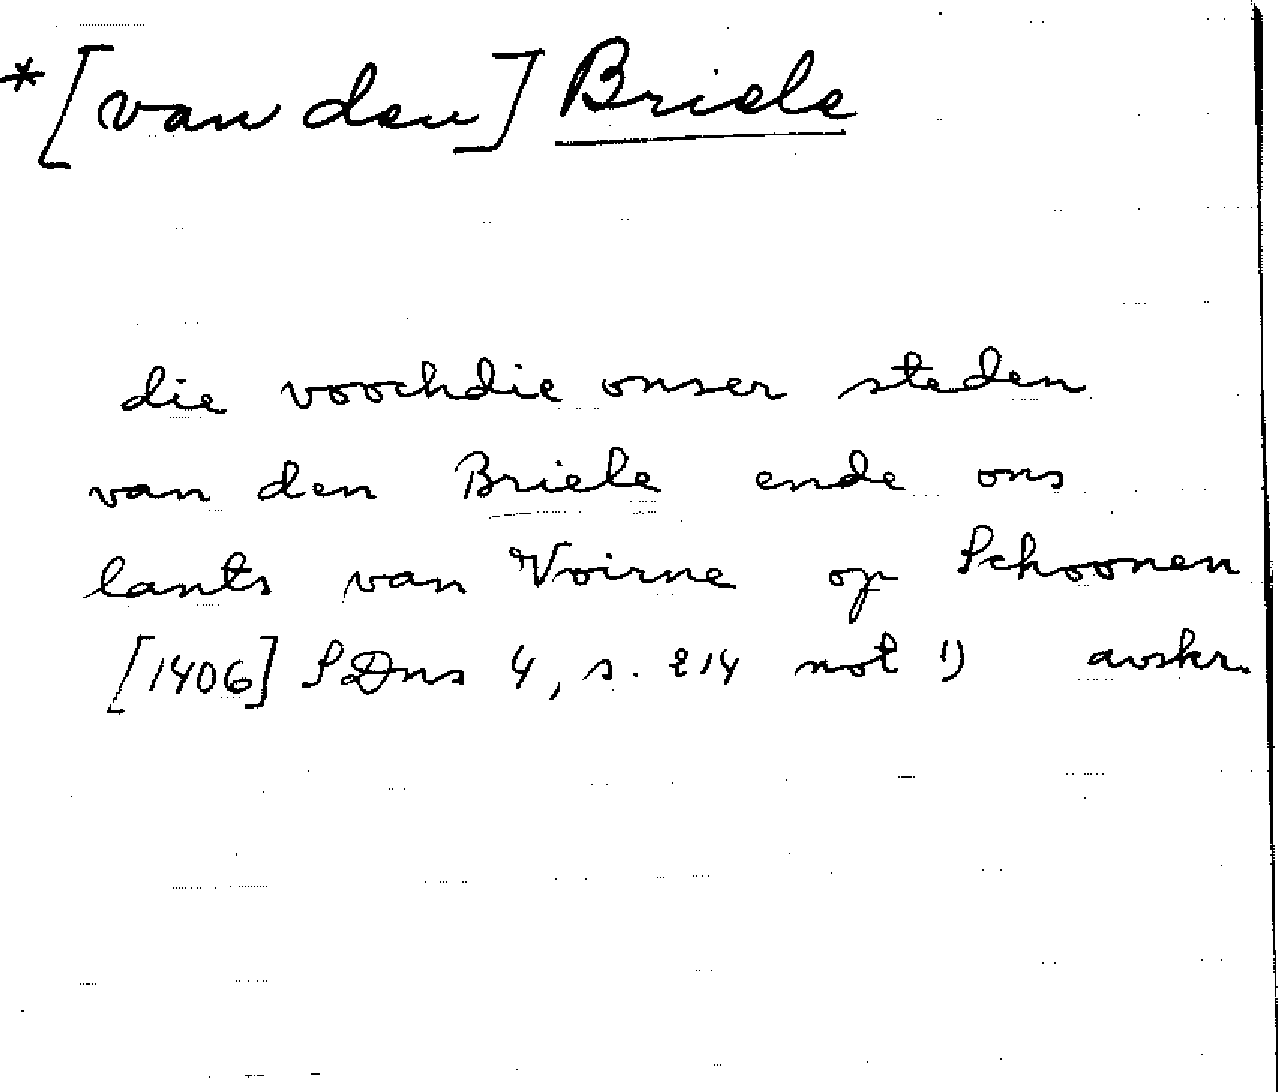 *[van den] Briele
die voochdie onser steden
van den Briele ende ons
lants van Voirne op Schoonen
[1406] SDns 4, s. 214 not 1) avskr.